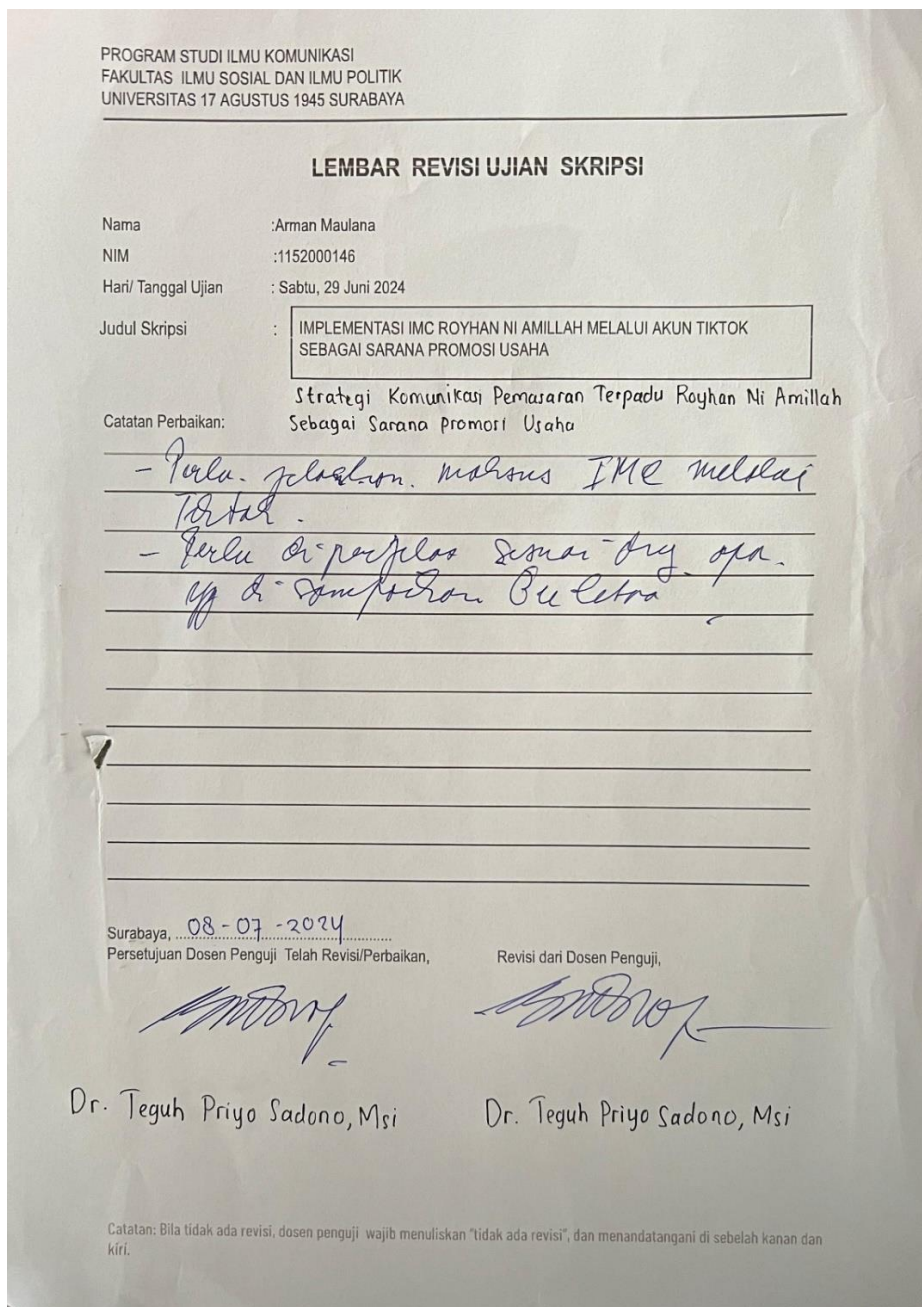 PROGRAM STUDI ILMU KOMUNIKASI
FAKULTAS ILMU SOSIAL DAN ILMU POLITIK
UNIVERSITAS 17 AGUSTUS 1945 SURABAYA
LEMBAR REVISI UJIAN SKRIPSI
Nama :Arman Maulana
NIM :1152000146
Hari/ Tanggal Ujian : Sabtu, 29 Juni 2024
Judul Skripsi : IMPLEMENTASI IMC ROYHAN NI AMILLAH MELALUI AKUN TIKTOK
SEBAGAI SARANA PROMOSI USAHA
Strategi Komunikasi Pemasaran Terpadu Royhan Ni Amillah
Catatan Perbaikan: Sebagai Sarana promosi Usaha
- Perlu IMC melalui
- Perlu di perjelas sesuai dng apa
yg di
Surabaya, 08-07-2024
Persetujuan Dosen Penguji Telah Revisi/Perbaikan, Revisi dari Dosen Penguji,
Dr. Teguh Priyo Sadono, Msi Dr. Teguh Priyo Sadono, Msi
Catatan: Bila tidak ada revisi, dosen penguji wajib menuliskan "tidak ada revisi", dan menandatangani di sebelah kanan dan
kiri.